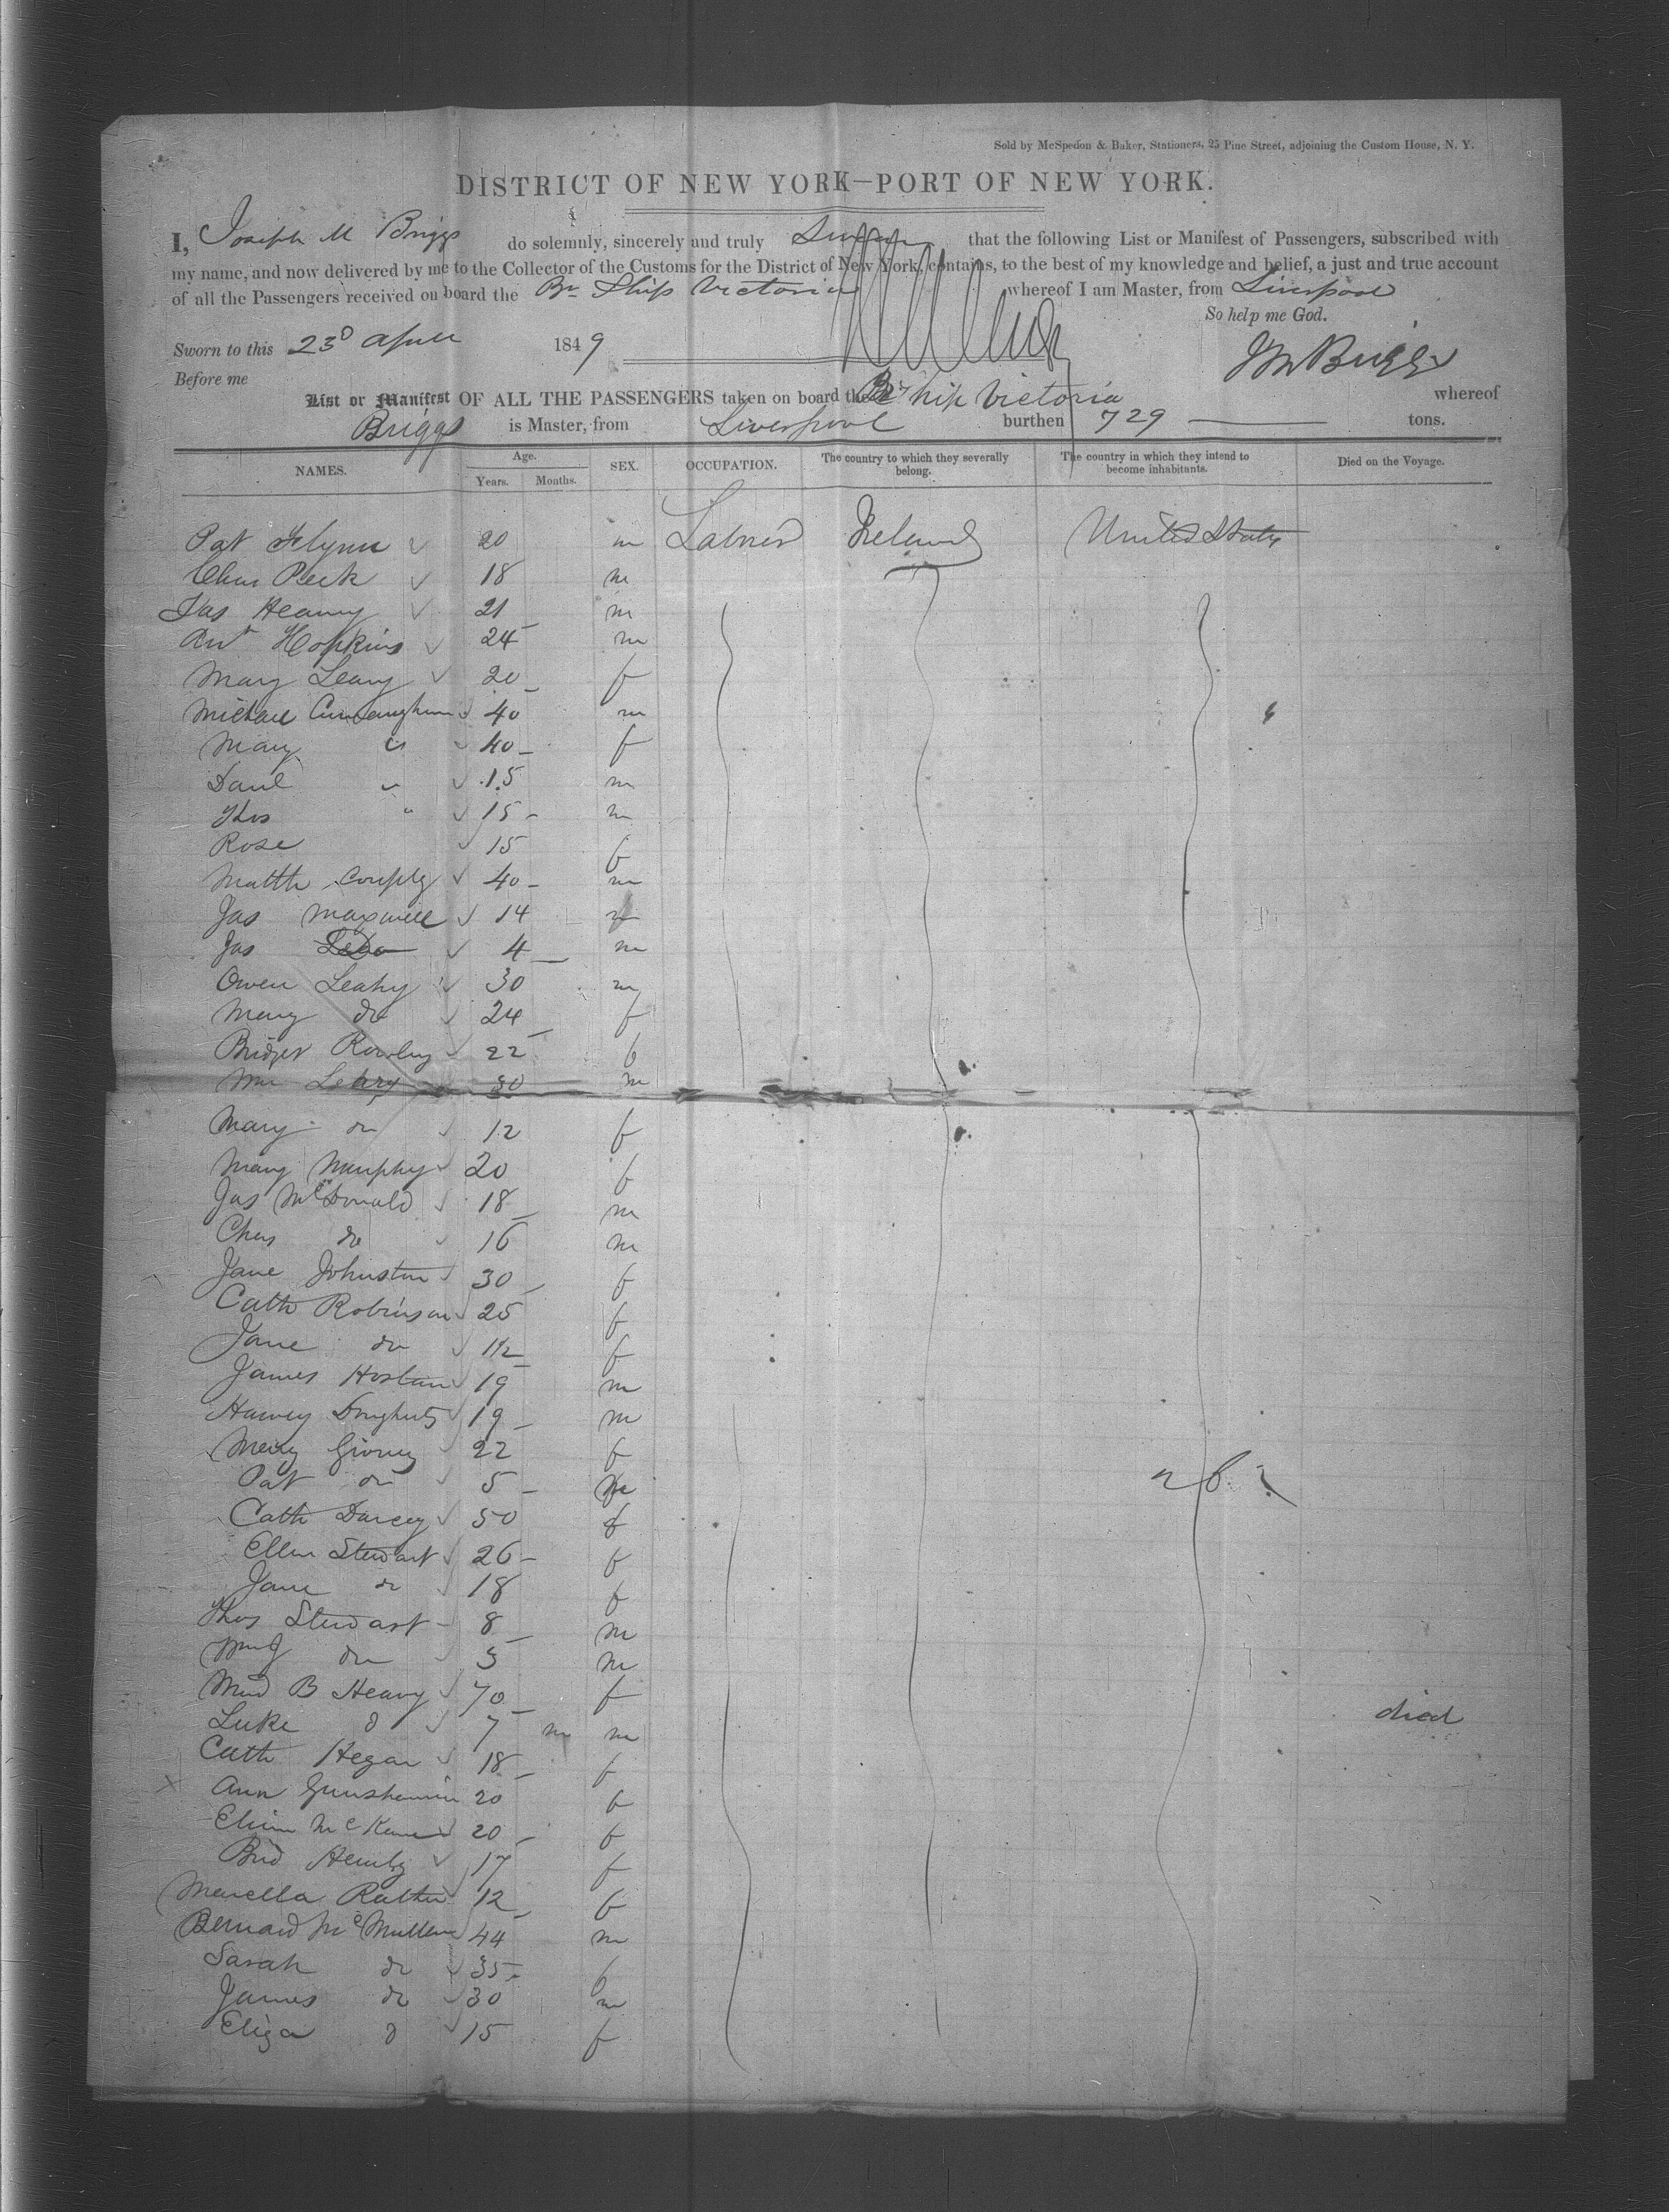 Sold by McSpedon & Baker, Stationers, 25 Pine Street, adjoining the Custom House, N. Y.
DISTRICT OF NEW YORK—PORT OF NEW YORK.
I, Joseph M Briggs do solemnly, sincerely and truly Swear that the following List or Manifest of Passengers, subscribed with
my name, and now delivered by me to the Collector of the Customs for the District of New York, contains, to the best of my knowledge and belief, a just and true account
of all the Passengers received on board the Br Ship Victoria whereof I am Master, from Liverpool
So help me God.
Sworn to this 23d April 1849
J M Briggs
Before me
List or Manifest OF ALL THE PASSENGERS taken on board the Br Ship Victoria whereof
Briggs is Master, from Liverpool burthen 729 tons.
NAMES. Age. Years. Months. SEX. OCCUPATION. The country to which they severally belong. The country in which they intend to become inhabitants. Died on the Voyage.
Pat Flynn 20 m Labourer Ireland United States
Chas Peek 18 m
Jas Heanny 21 m
Ant Hopkins 24 m
Mary Leary 20 f
Michael Cunningham 40 m
Mary " 40 f
Danl " 15 m
Thos " 15 m
Rose 15 f
Matth 40 m
Jas Maxwell 14 m
Jas 4 m
Owen Leahy 30 m
Mary do 24 f
Bridget Rowley 22 f
Wm Leary 30 m
Mary do 12 f
Mary Murphy 20 f
Jas McDonald 18 m
Chas do 16 m
Jane Johnston 30 f
Cath Robinson 25 f
Jane do 1½ f
James 19 m
Harvey Dougherty 19 m
Mary 22 f
Pat do 5 m
Cath Darcey 50 f
Ellen Stewart 26 f
Jane do 18 f
Thos Stewart 8 m
Wm J do 5 m
B Heavy 70 f died
Luke d 7 m m
Cath Hegan 18 f
Ann 20 f
McKenna 20 f
Brid 17 f
12 f
Bernard McMullen 44 m
Sarah do 35 f
James do 30 m
Eliza d 15 f